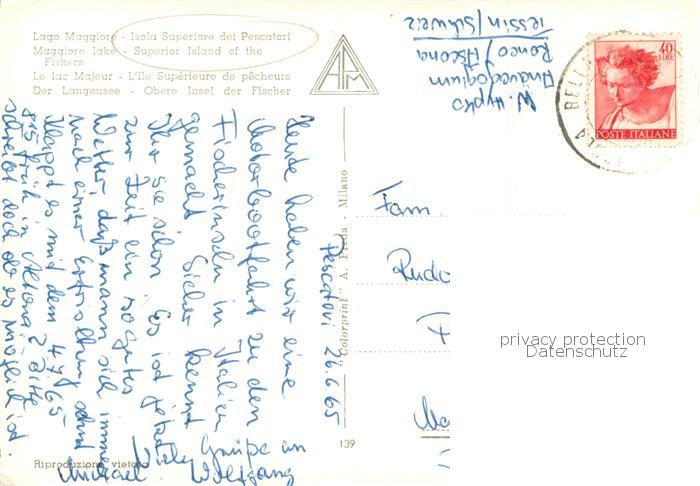 Lago Maggiore - Isola Superiore dei Pescatori
Maggiore lake - Superior Island of the
Fishers
Le lac Majeur - L'Ile Supérieure de pêcheurs
Der Langensee - Obere Insel der Fischer
APM
W. Hypko
Ronco/Ascona
Tessin/Schweiz
BELLA
40
LIRE
POSTE ITALIANE
"Colorprint" A. Preda - Milano
Pescatori 26.6.65
Heute haben wir eine
Motorbootfahrt zu den
Fischerinseln in Italien
gemacht. Sicher kennt
Ihr sie schon. Es ist
zur Zeit ein
Wetter, daß mann sich immer
nach einer Erfrischung sehnt
Klappt es mit dem 4.7.65
8.15 früh in Bitte
schreibt doch ob es möglich ist
Viele Grüße an
Michael Wolfgang
Fam.
Rudo
139
Riproduzione vietata
privacy protection
Datenschutz